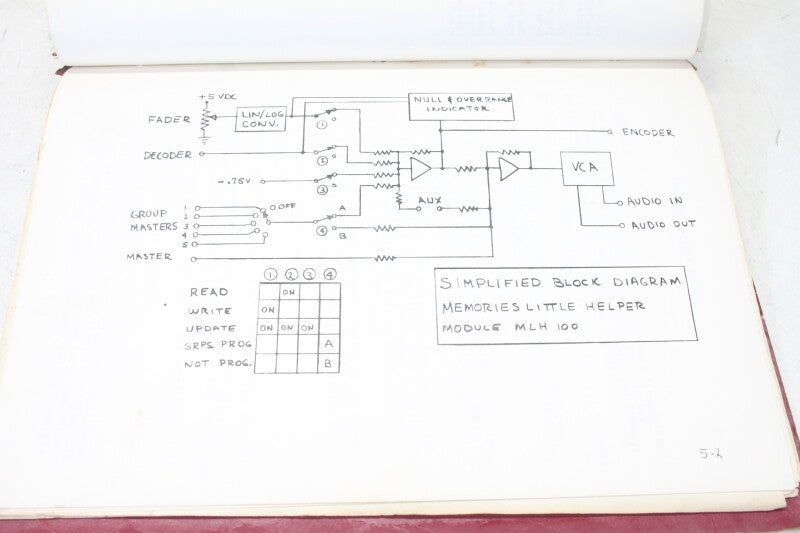 +5VDC
FADER
LIN/LOG
CONV.
NULL & OVERRANGE
INDICATOR
1
ENCODER
DECODER
2
VCA
-.75V
3
AUX
AUDIO IN
OFF
A
GROUP
MASTERS
1
2
3
4
5
4
B
AUDIO OUT
MASTER
1 2 3 4
READ ON
WRITE ON
UPDATE ON ON ON
GRPS. PROG A
NOT PROG. B
SIMPLIFIED BLOCK DIAGRAM
MEMORIES LITTLE HELPER
MODULE MLH 100
5-2